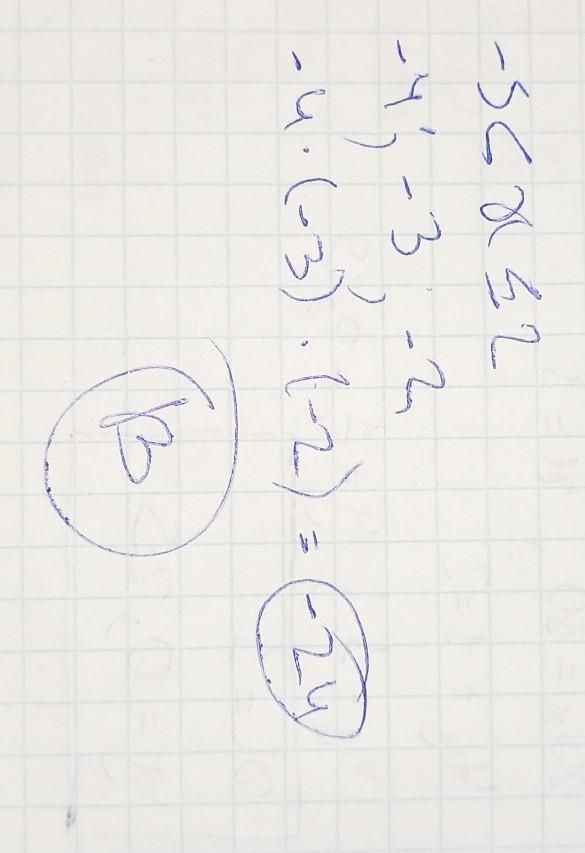 -5 < x ≤ 2
-4; -3; -2
-4 · (-3) · (-2) = -24
B